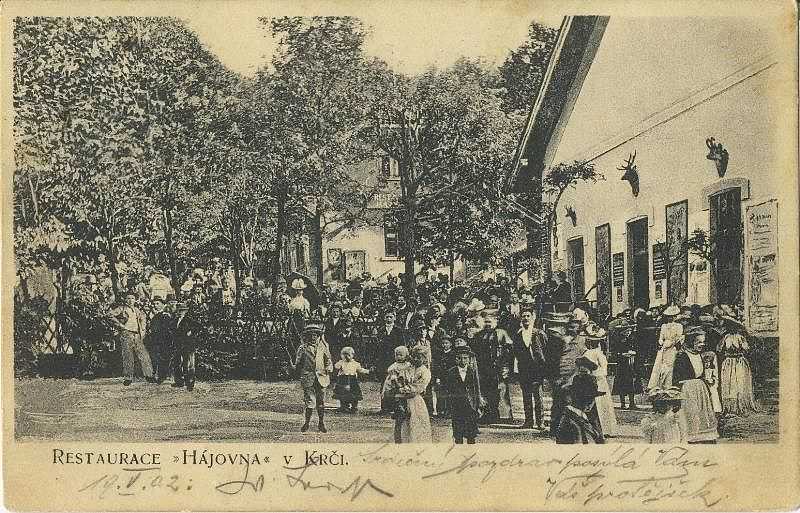 RESTAURACE »HÁJOVNA« V KRČI.
Srdečný pozdrav posílá Vám
19.V.02.
Váš protějšek.